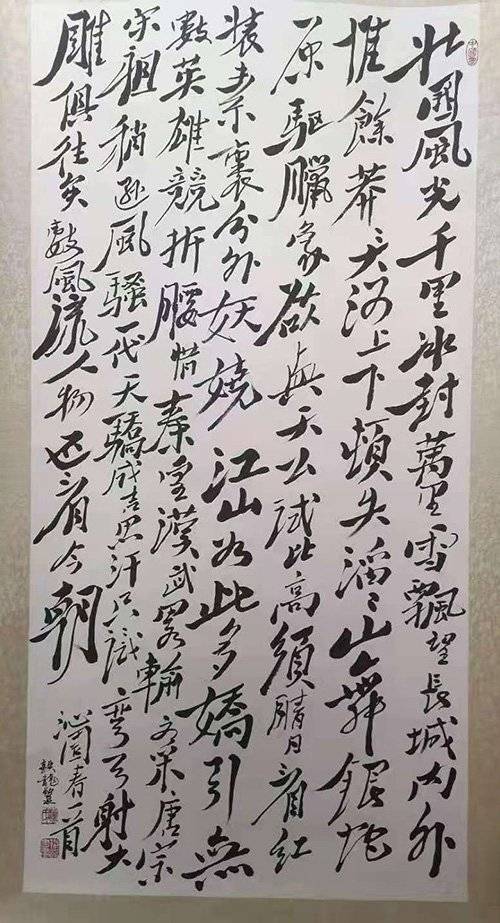 北國風光千里冰封萬里雪飄望長城内外
惟餘莽々大河上下頓失滔々山舞銀蛇
原驅臘象欲與天公試比高須晴日看紅
裝素裹分外妖嬈江山如此多嬌引無
數英雄競折腰惜秦皇漢武略輸文采唐宗
宋祖稍遜風騷一代天驕成吉思汗只識彎弓射大
雕俱往矣數風流人物還看今朝
沁園春一首